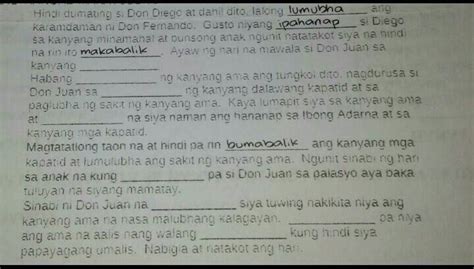 Hindi dumating si Don Diego at dahil dito, lalong lumubha ang
karamdaman ni Don Fernando. Gusto niyang ipahanap si Diego
sa kanyang minamahal at bunsong anak ngunit natatakot siya na hindi
na rin ito makabalik. Ayaw ng hari na mawala si Don Juan sa
kanyang ____________
Habang ____________ ng kanyang ama ang tungkol dito, nagdurusa si
Don Juan sa ____________ ng kanyang dalawang kapatid at sa
paglubha ng sakit ng kanyang ama. Kaya lumapit siya sa kanyang ama
at ____________ na siya naman ang hahanap sa Ibong Adarna at sa
kanyang mga kapatid.
Magtatatlong taon na at hindi pa rin bumabalik ang kanyang mga
kapatid at lumulubha ang sakit ng kanyang ama. Ngunit sinabi ng hari
sa anak na kung ____________ pa si Don Juan sa palasyo aya baka
tuluyan na siyang mamatay.
Sinabi ni Don Juan na ____________ siya tuwing nakikita niya ang
kanyang ama na nasa malubhang kalagayan. ____________ pa niya
ang ama na aalis nang walang ____________ kung hindi siya
papayagang umalis. Nabigla at natakot ang hari.